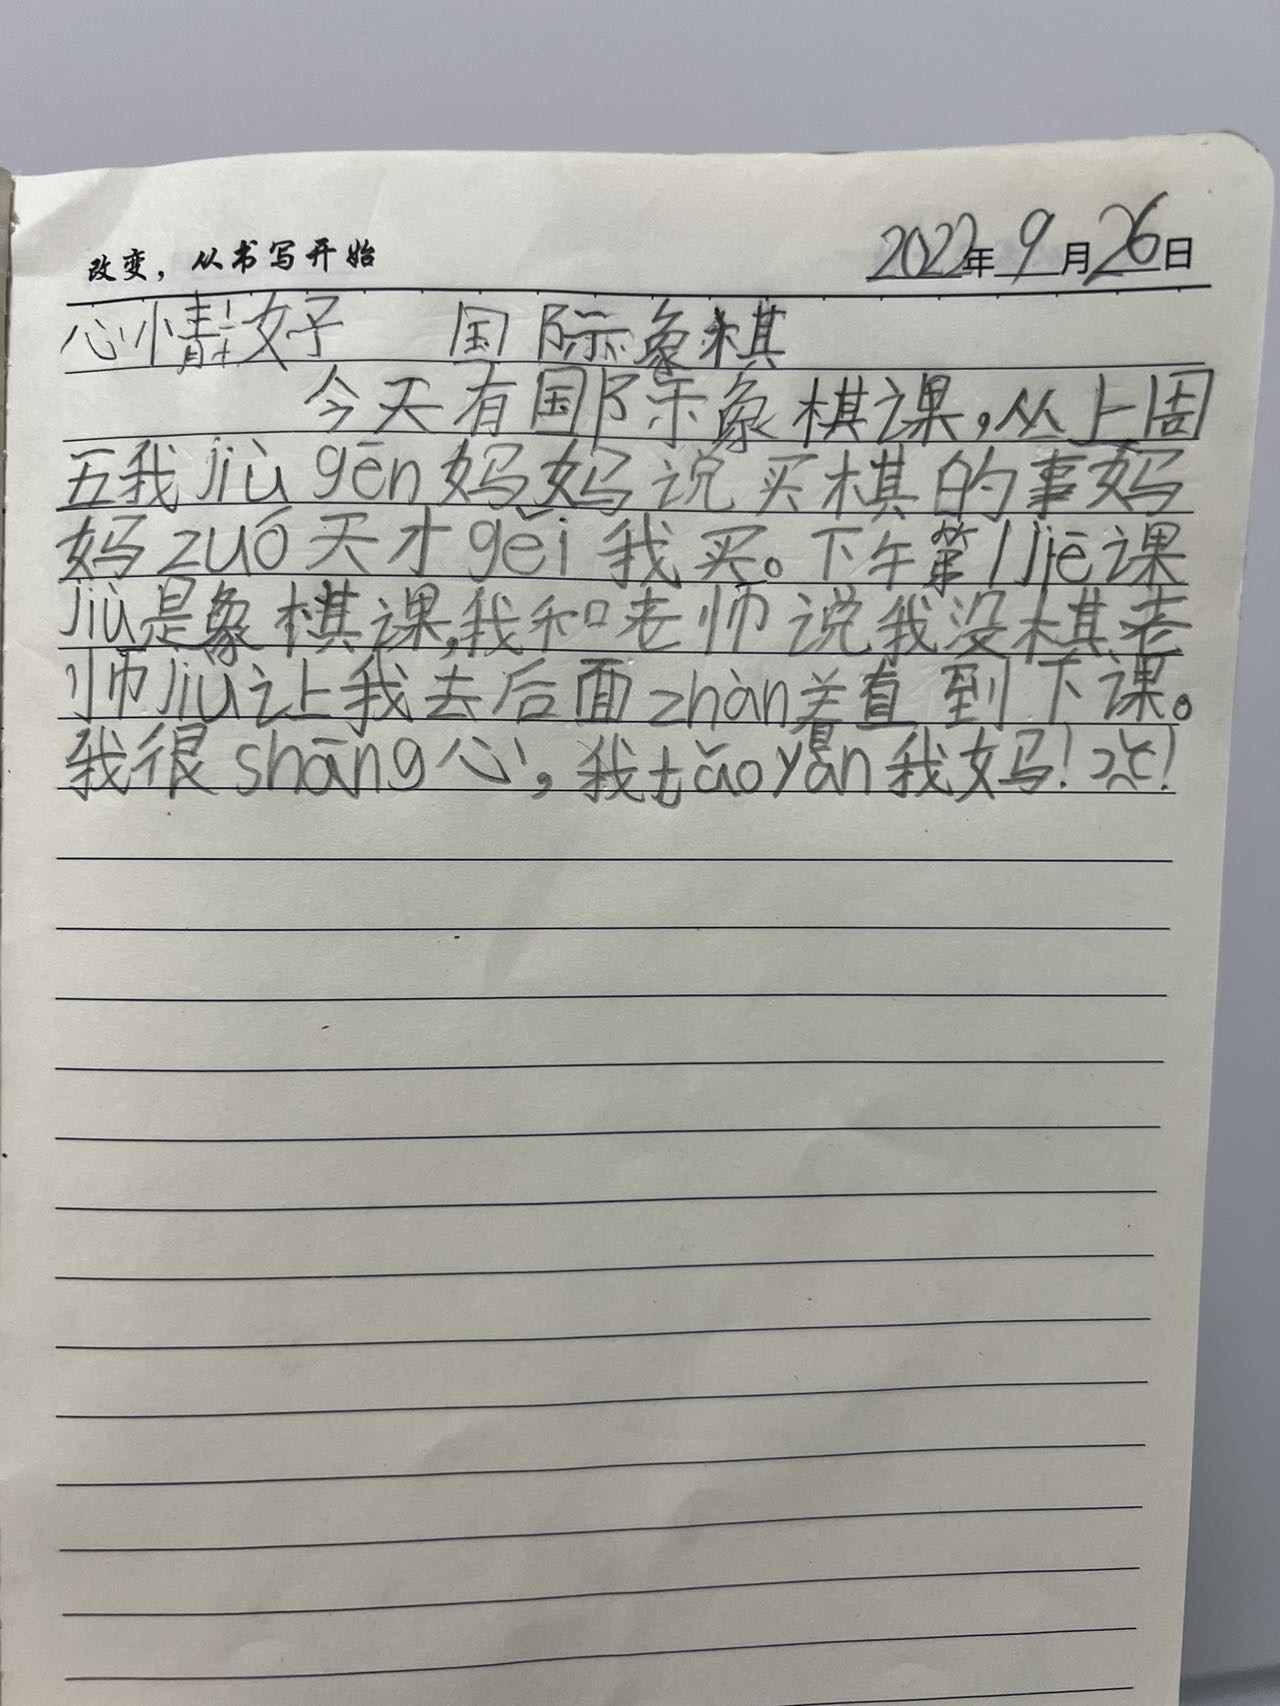 改变，从书写开始 2022年9月26日
心情好 国际象棋
今天有国际象棋课，从上周
五我jiù gēn妈妈说买棋的事妈
妈zuó天才gěi我买。下午第1jiē课
jiù是象棋课，我和老师说我没棋老
师jiù让上我去后面zhàn着直到下课。
我很shāng心，我tǎoyàn我妈！